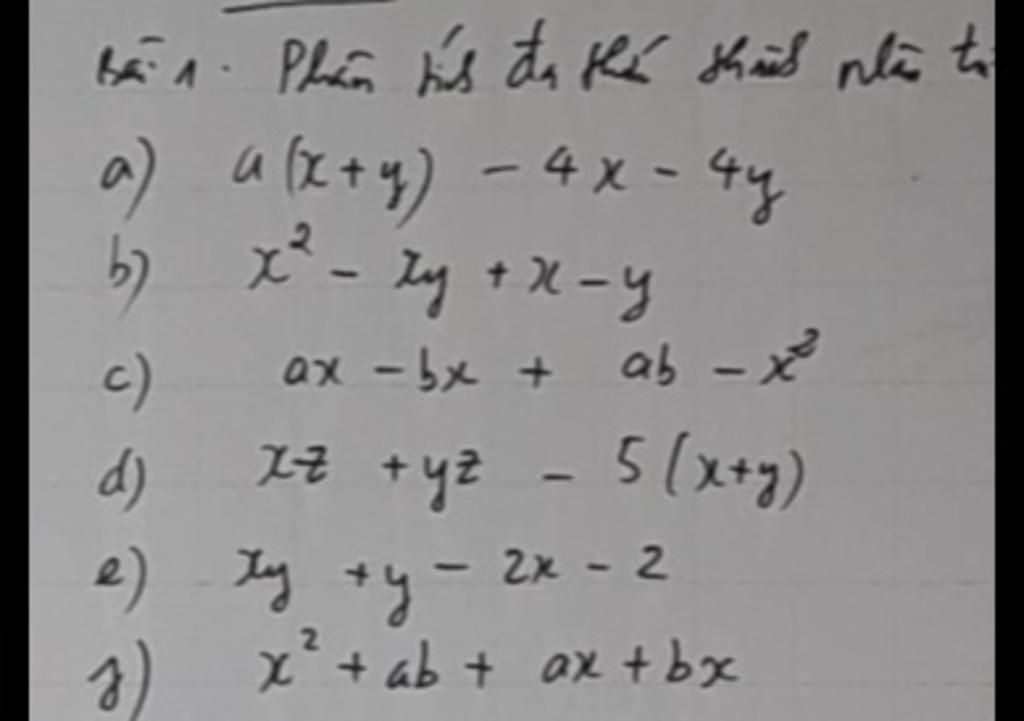 Bài 1. Phân tích đa thức thành nhân tử
a) a(x+y) - 4x - 4y
b) x² - xy + x - y
c) ax - bx + ab - x²
d) xz + yz - 5(x+y)
e) xy + y - 2x - 2
f) x² + ab + ax + bx